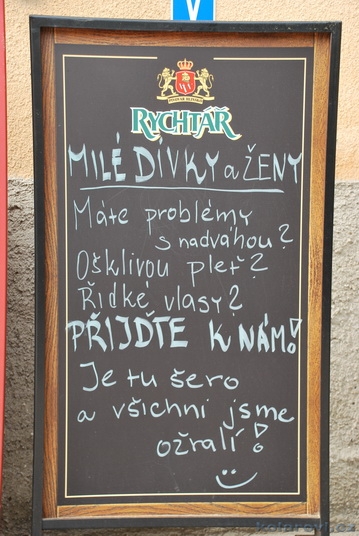 V
RYCHTÁŘ
MILÉ DÍVKY a ŽENY
Máte problémy
s nadváhou?
Ošklivou pleť?
Řídké vlasy?
PŘIJĎTE K NÁM!
Je tu šero
a všichni jsme
ožralí!